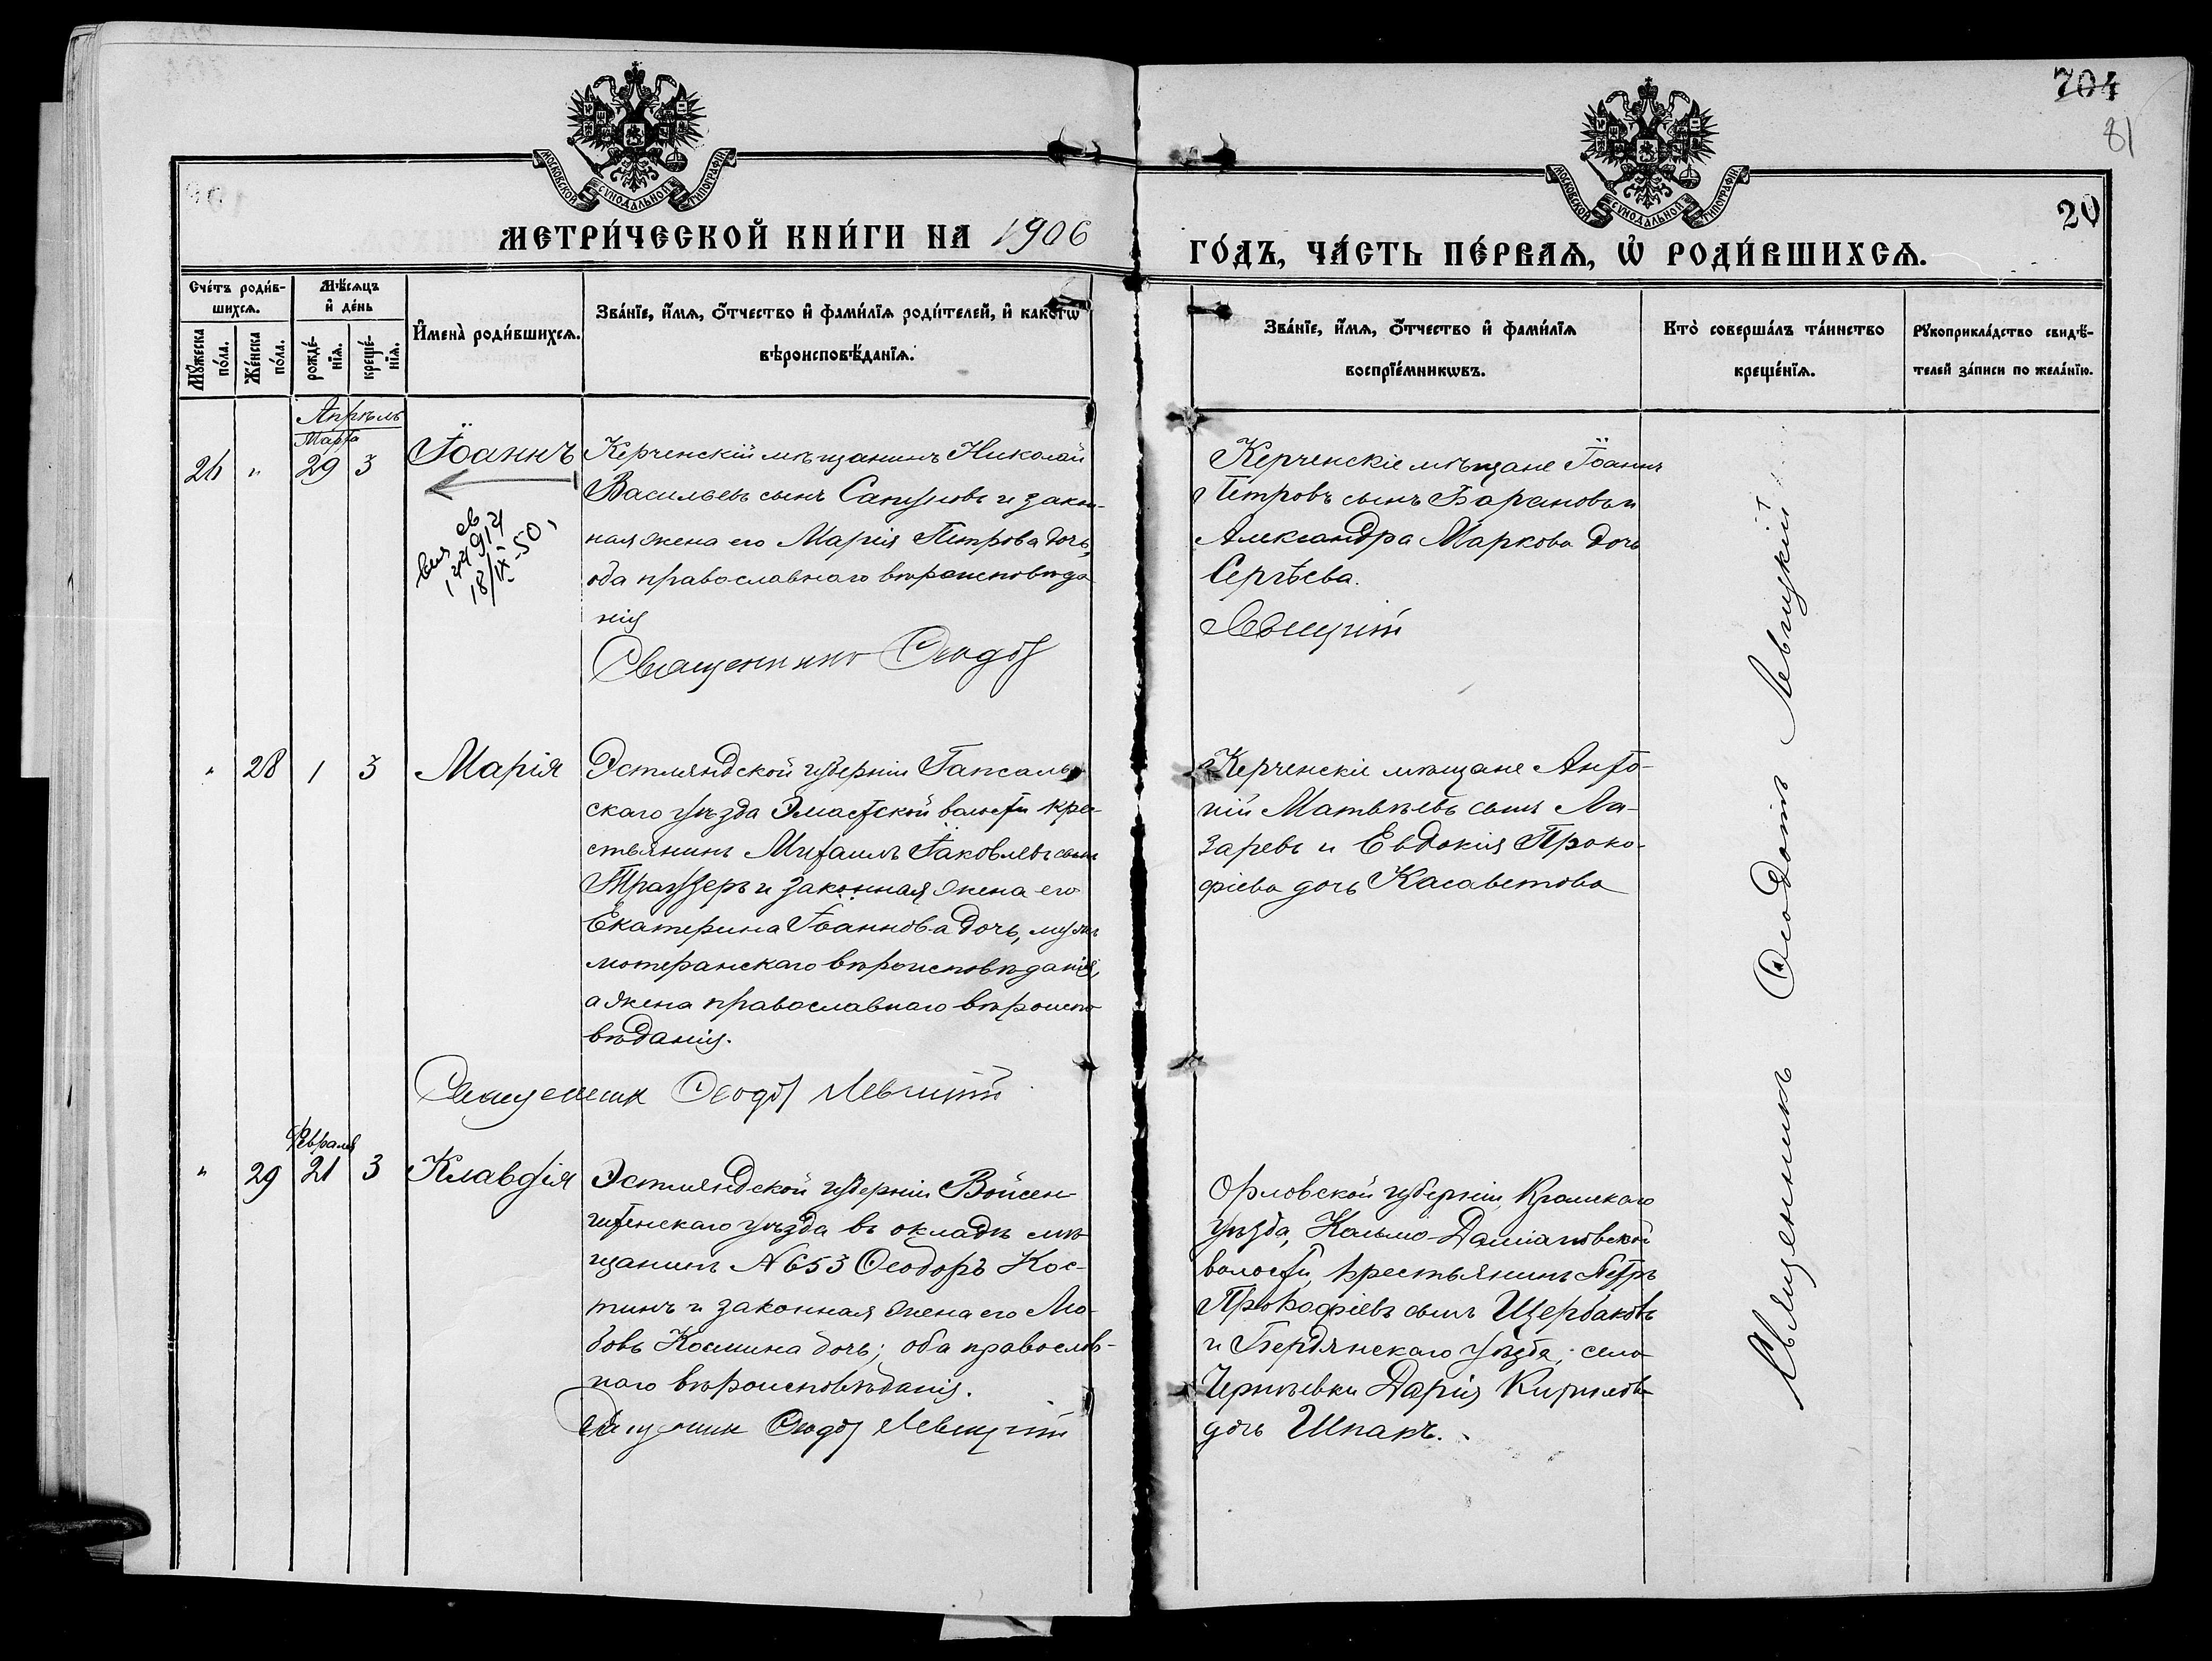 704
81
20
МОСКОВСКОЙ СѴНОДАЛЬНОЙ ТИПОГРАФІИ
МОСКОВСКОЙ СѴНОДАЛЬНОЙ ТИПОГРАФІИ
МЕТРИ́ЧЕСКОЙ КНИ́ГИ НА 1906
ГО́ДЪ, ЧА́СТЬ ПЕ́РВАѦ, Ѽ РОДИ́ВШИХСѦ.
Сче́тъ роди́в-
шихсѧ.
Мѣ́сѧцъ
и҆ де́нь
Мꙋ́жеска
по́ла.
Же́нска
по́ла.
рожде́-
нїѧ.
креще́-
нїѧ.
И҆мена̀ роди́вшихсѧ.
Зва́нїе, и҆́мѧ, ѻ҆́тчество и҆ фами́лїѧ роди́телей, и҆ како́гѡ
вѣроисповѣ́данїѧ.
Зва́нїе, и҆́мѧ, ѻ҆́тчество и҆ фами́лїѧ
воспрїе́мникѡвъ.
Кто̀ соверша́лъ та́инство
креще́нїѧ.
Рꙋкоприкла́дство свидѣ́-
телей за́писи по жела́нїю.
Апрѣль
Марта
26 " 29 3 Іоаннъ
Керченскій мѣщанинъ Николай
Васильевъ сынъ и закон-
ная жена его Марія Петрова дочь,
оба православнаго вѣроисповѣда
нія
Священникъ Ѳеодот
18/IX-50,
Керченскіе мѣщане Іоаннъ
Петровъ сынъ Барановъ и
Александра Маркова дочь
Сергѣева.
Левицкій
" 28 1 3 Марія
Эстляндской губерніи Гапсаль-
скаго уѣзда волости кре-
стьянинъ Михаилъ Іаковлевъ сынъ
Траузеръ и законная жена его
Екатерина Іоаннова дочь, мужъ
лютеранскаго вѣроисповѣданія,
а жена православнаго вѣроиспо
вѣданія.
Священник Ѳеодот Левицкій
Керченскіе мѣщане Анто-
ній Матвѣевъ сынъ Ла-
заревъ и Евдокія Проко-
фіева дочь Касаветова
Февраля
" 29 21 3 Клавдія
Эстляндской губерніи Войсен-
штенскаго уѣзда въ окладѣ мѣ-
щанинъ № 653 Ѳеодоръ Кос-
тинъ и законная жена его Лю-
бовь Космина дочь; оба православ-
наго вѣроисповѣданія.
Священник Ѳеодот Левицкій
Орловской губерніи, Кромскаго
уѣзда, Космо-Даміановской
волости, крестьянинъ Петръ
Прокофіевъ сынъ Щербаковъ
и Бердянскаго уѣзда, села
Чернѣевки Дарія Кирилов
дочь Шпакъ.
Священникъ Ѳеодотъ Левицкій